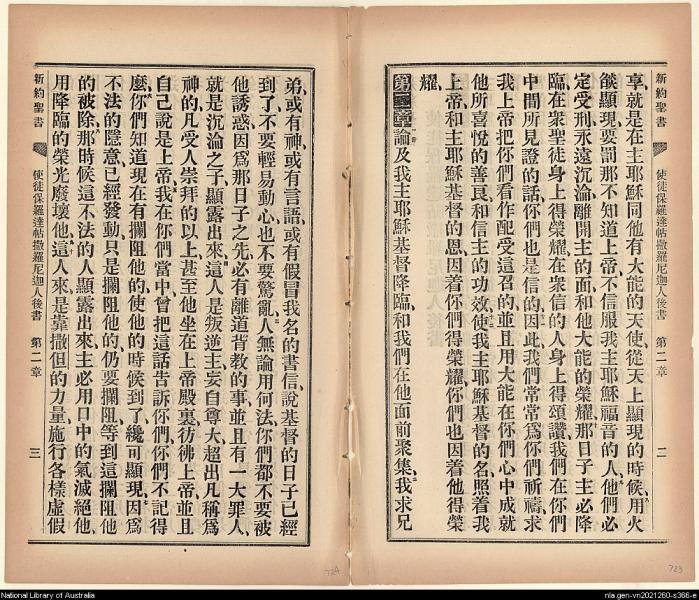 新約聖書
使徒保羅達帖撒羅尼迦人後書
第二章
二
享就是在主耶穌同他有大能的天使從天上顯現的時候、用火
燄顯現要罰那不知道上帝、不信服我主耶穌福音的人、他們必
定受刑永遠沉淪離開主的面和他大能的榮耀、那日子主必降
臨在衆聖徒身上得榮耀、在衆信的人身上得頌讚、我們在你們
中間所見證的話、你們也是信的、因此我們常常爲你們祈禱、求
我上帝把你們看作配受這召的、並且用大能在你們心中成就
他所喜悅的善良、和信主的功效、使我主耶穌基督的名照着我
上帝和主耶穌基督的恩、因着你們得榮耀、你們也因着他得榮
耀、
第二章論及我主耶穌基督降臨、和我們在他面前聚集、我求兄
新約聖書
使徒保羅達帖撒羅尼迦人後書
第二章
三
弟、或有神、或有言語、或有假冒我名的書信、說基督的日子已經
到了、不要輕易動心、也不要驚亂、人無論用何法、你們都不要被
他誘惑、因爲那日子之先、必有離道背教的事、並且有一大罪人、
就是沉淪之子、顯露出來、這人是叛逆主、妄自尊大、超出凡稱爲
神的、凡受人崇拜的以上、甚至他坐在上帝殿裏、彷彿上帝、並且
自己說是上帝、我在你們當中、曾把這話告訴你們、你們不記得
麽、你們知道現在有攔阻他的、使他的時候到了、纔可顯現、因爲
不法的隱意、已經發動、只是攔阻他的、仍要攔阻、等到這攔阻他
的被除、那時候這不法的人顯露出來、主必用口中的氣滅絕他、
用降臨的榮光廢壞他、這人來是靠撒但的力量、施行各樣虛假
724
723
National Library of Australia
nla.gen-vn2021260-s366-e